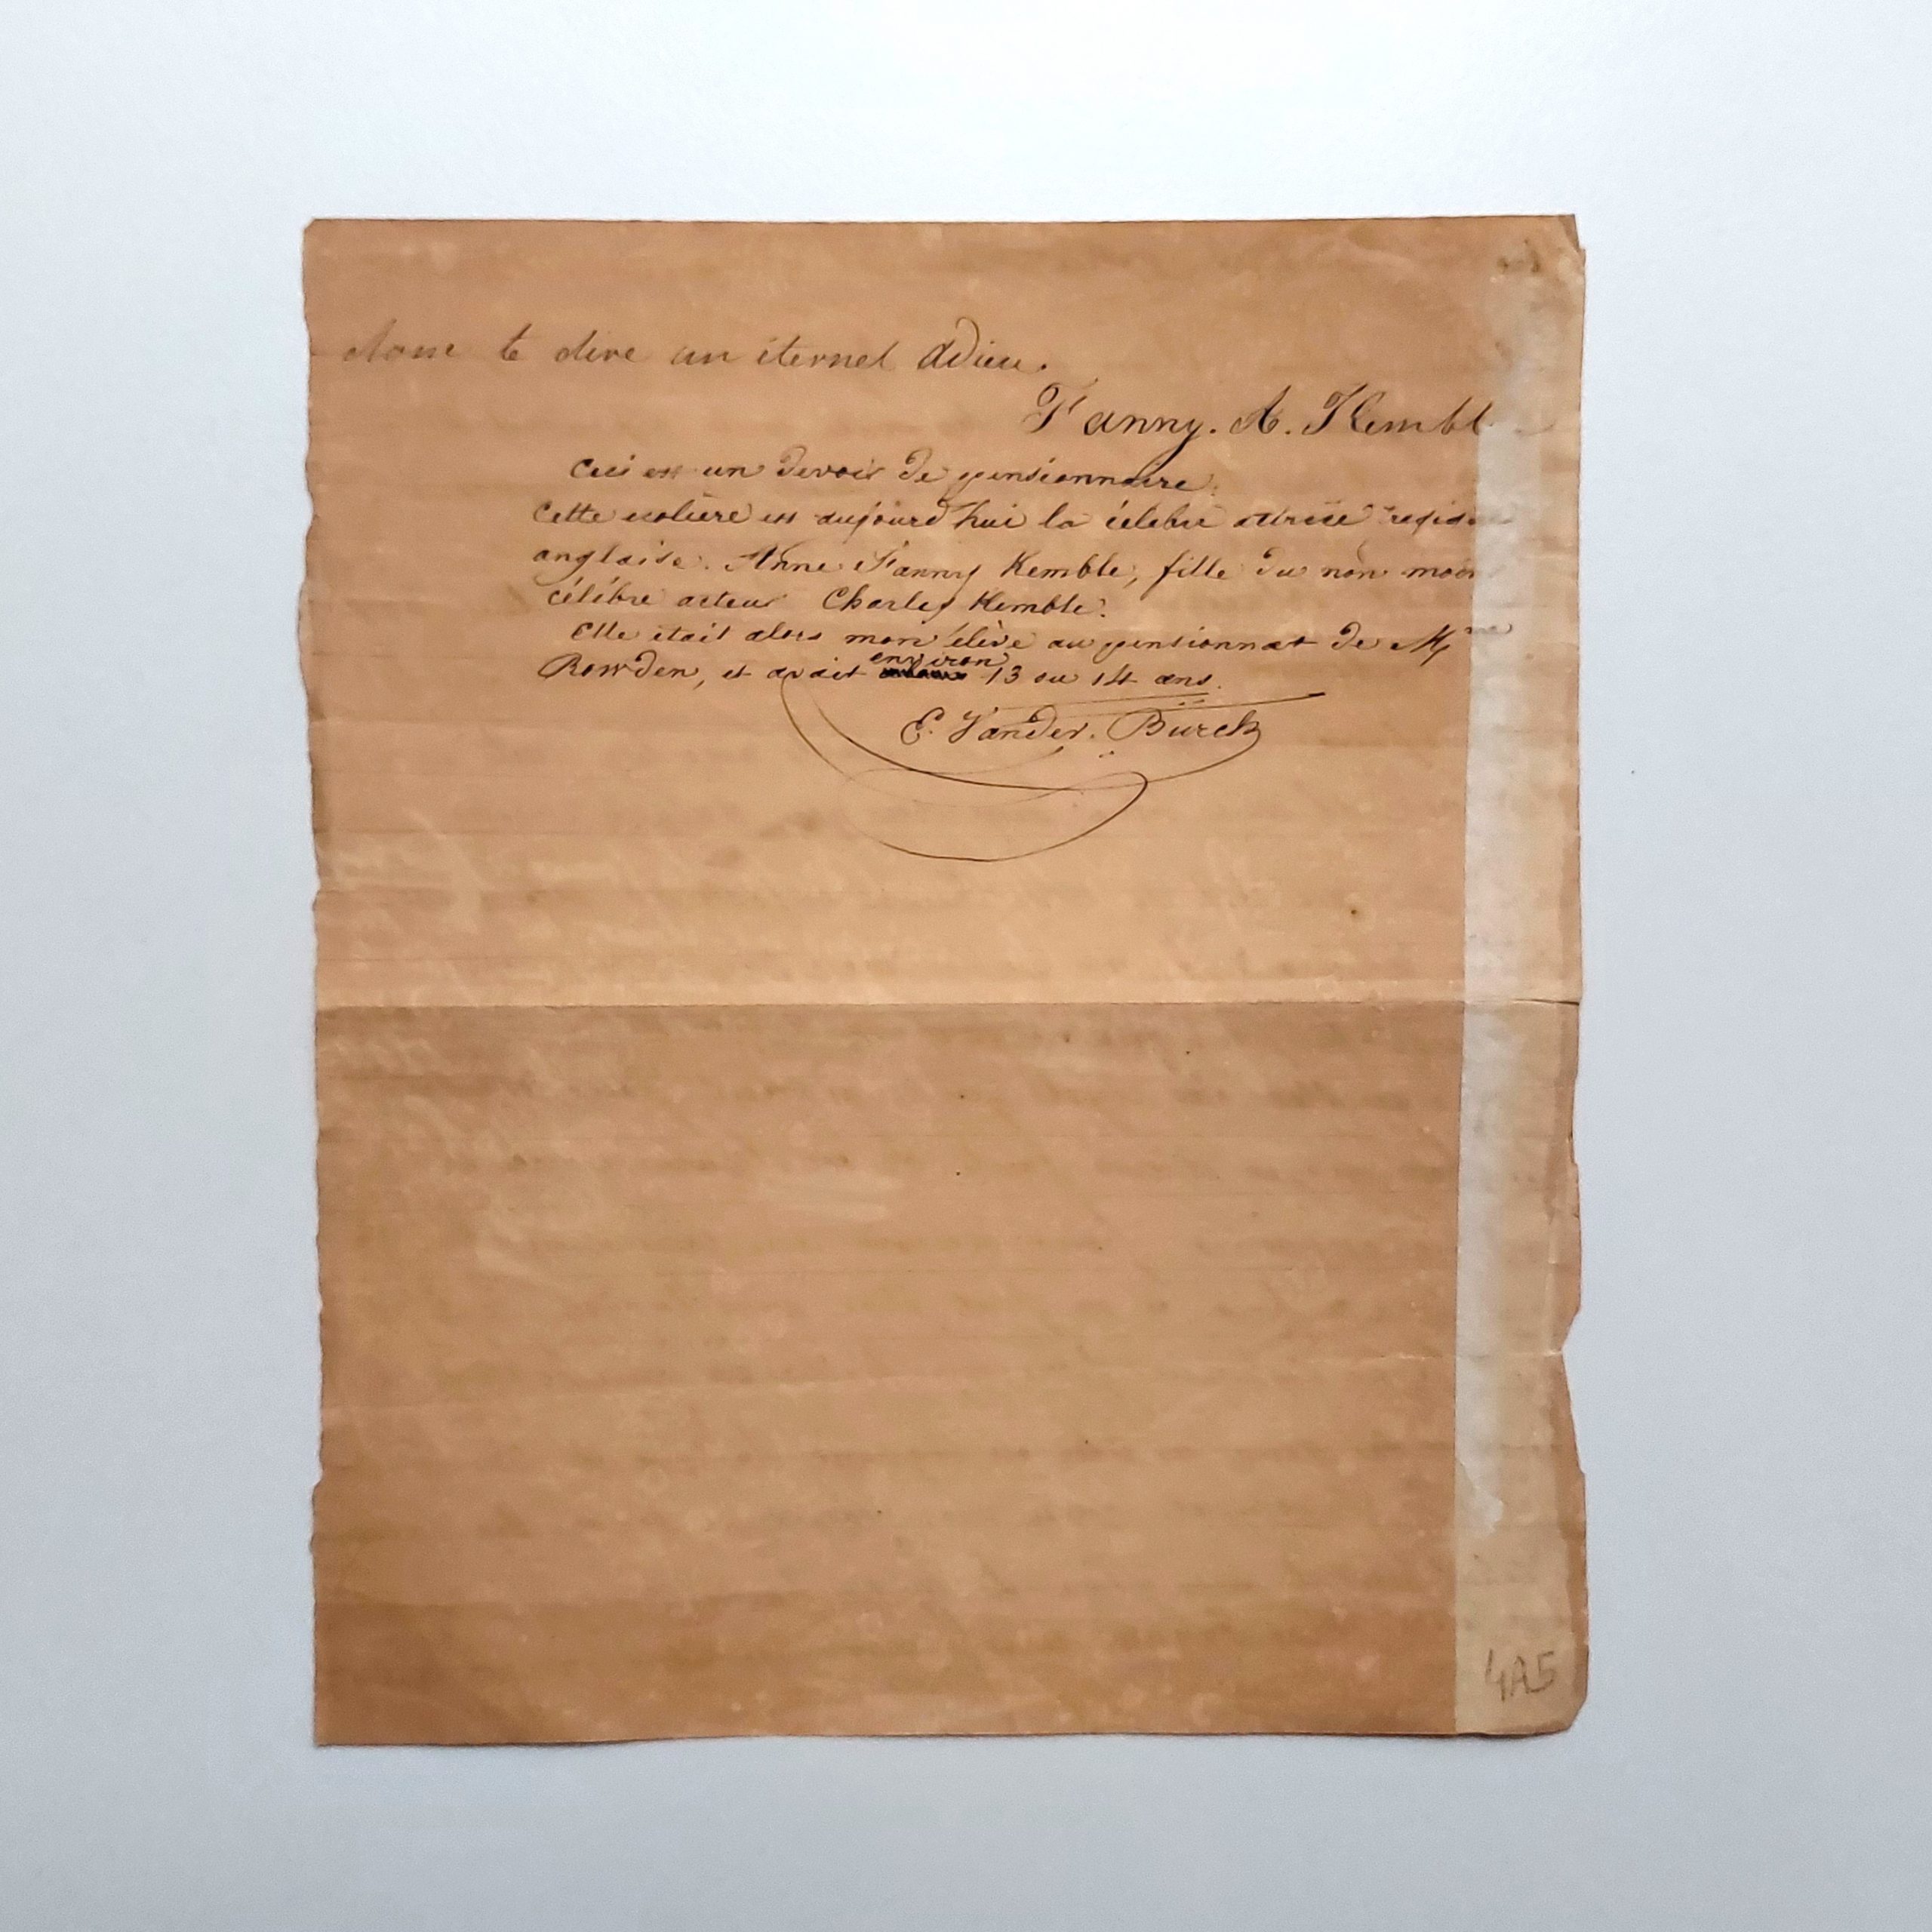 donc te dire un éternel adieu.
Fanny. A. Kemble
Ceci est un devoir de pensionnaire.
Cette écolière est aujourd'hui la célèbre actrice
anglaise. Anne Fanny Kemble, fille du non moins
célébre acteur Charles Kemble.
Elle était alors mon élève au pensionnat de Mme
Rowden, et avait environ 13 ou 14 ans.
E. Vander. Burch
4A5